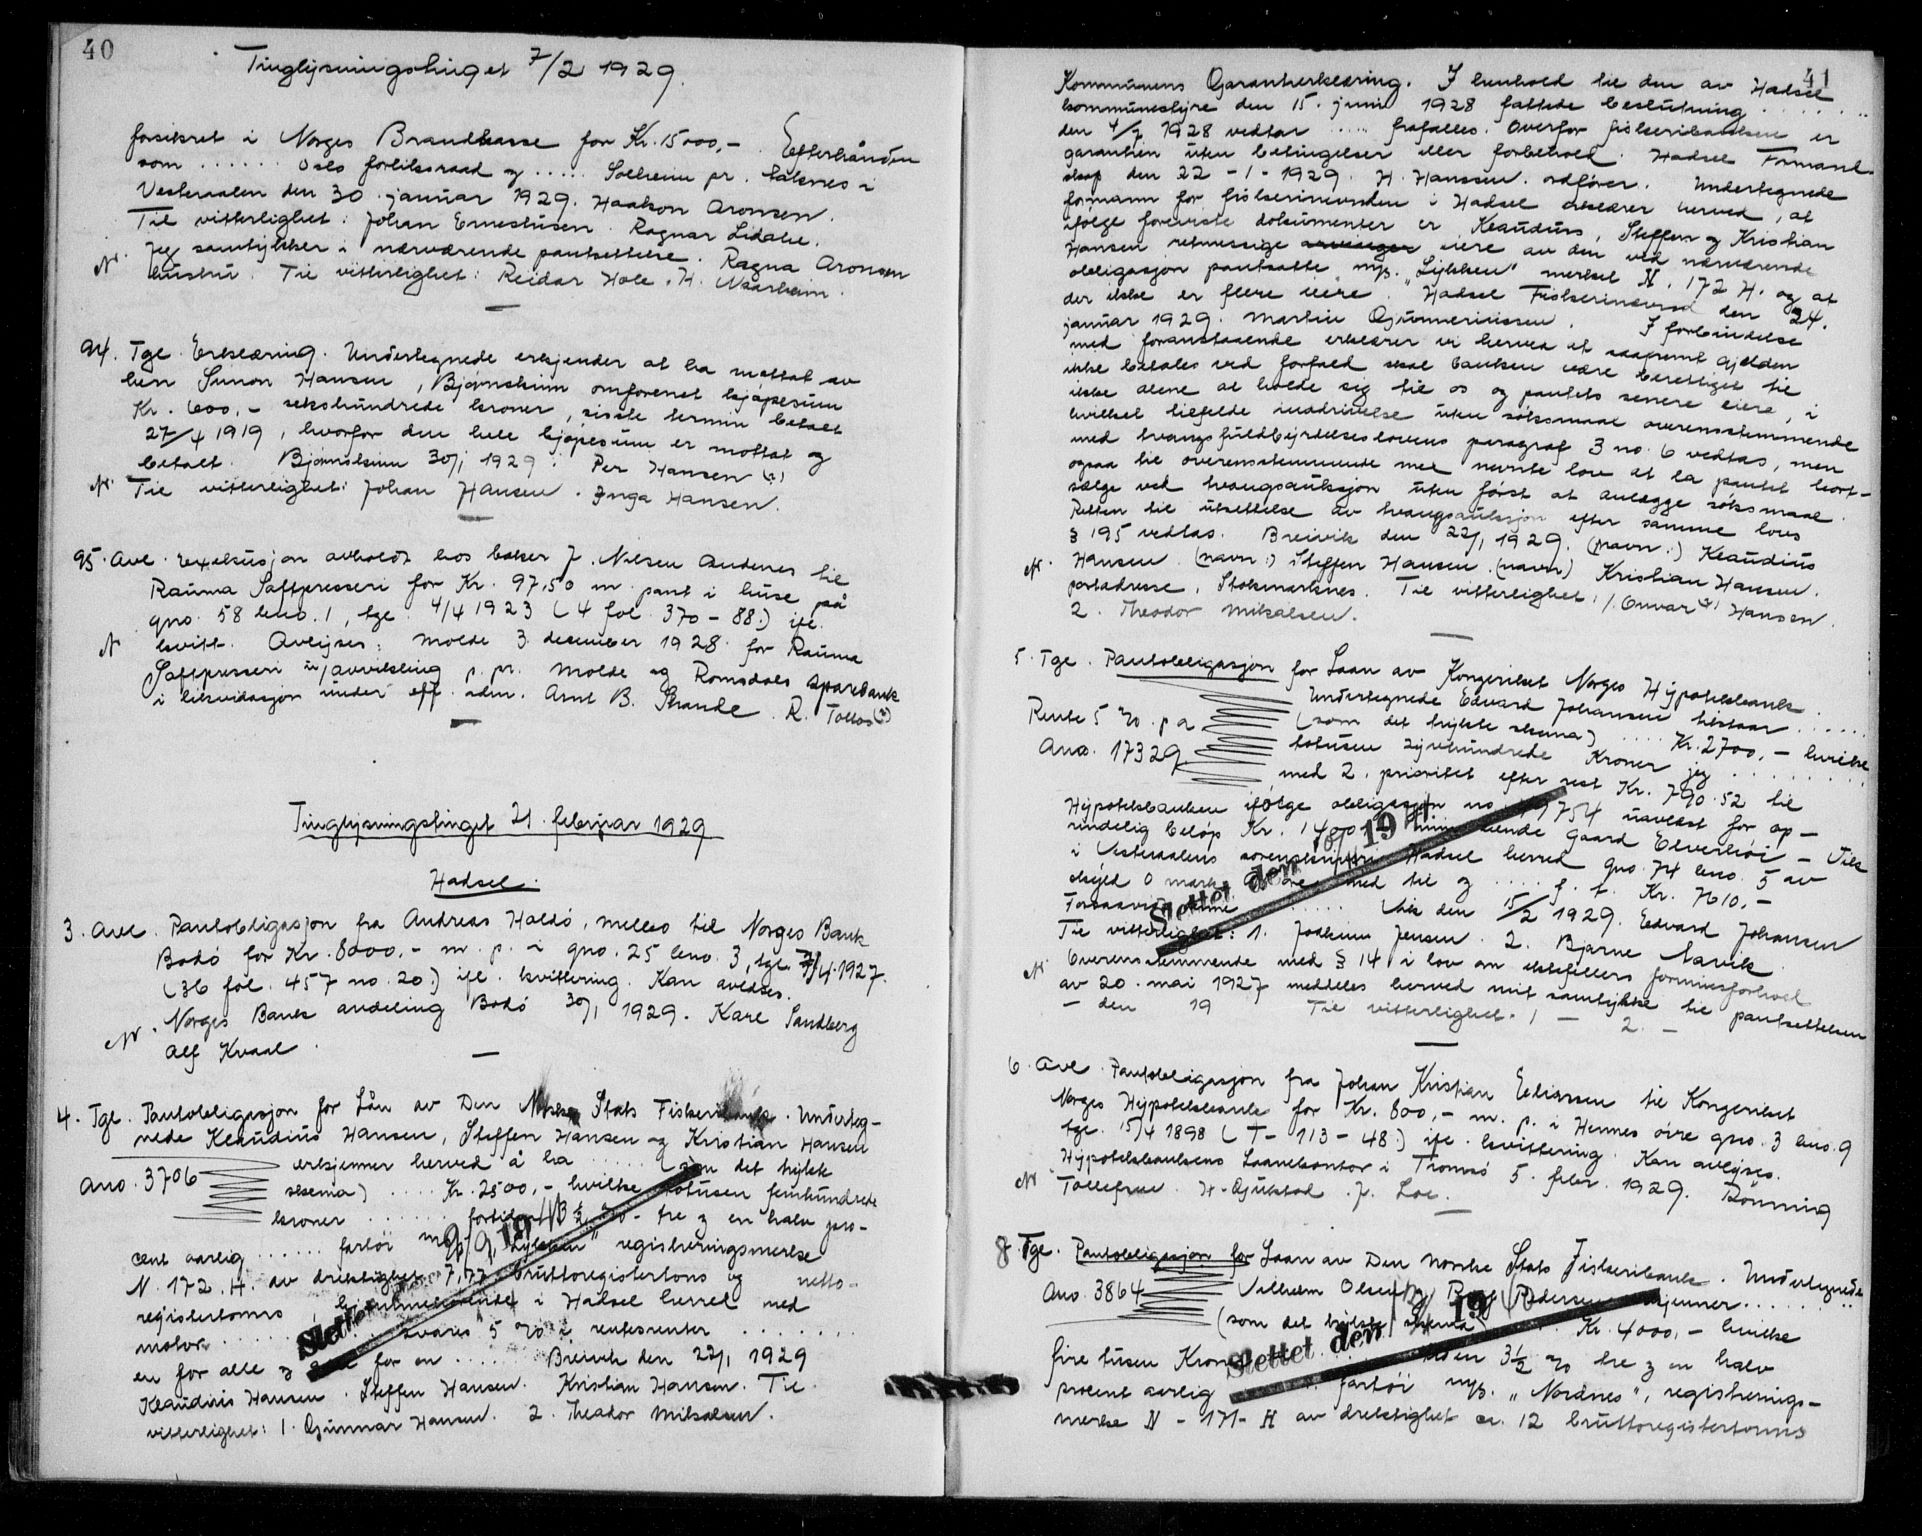 40
Tinglysningstinget 7/2 1929.
forsikret i Norges Brandkasse for Kr. 15000,-. Efterhånden
som ...... Oslo forliksraad og ..... Solheim pr. i
Vesteraalen den 30. januar 1929. Haakon Aronsen.
Til vitterlighet: Johan Ernestusen. Ragnar Lidahl.
Jeg samtykker i nærværende pantsettelse. Ragna Aronsen
N. hustru. Til vitterlighet: Reidar Hole. H. Naarheim.
94. Tgl. Erklæring. Undertegnede erkjender at ha mottat av
herr Simon Hansen, Bjørnskinn omforenet kjøpesum
Kr. 600,- sekshundrede kroner, sisste termin betalt
27/4 1919, hvorfor den hele kjøpesum er mottat og
betalt. Bjørnskinn 30/1 1929: Per Hansen
N. Til vitterlighet: Johan Hansen. Inga Hansen.
95. Avl. Exekusjon avholdt hos baker J. Nilsen Andenes til
Rauma Saftpresseri for Kr. 97,50 m. pant i huse på
gno. 58 bno. 1, tgl. 4/4 1923 (4 fol. 370 - 88.) ifl.
N kvitt. Avlyses: Molde 3. desember 1928 for Rauma
Saftpresseri u/avvikling p. pr. Molde og Romsdals Sparebank
i likvidasjon under off. adm. Arnt B. Strande. R.
Tinglysningstinget 21. februar 1929
Hadsel.
3. Avl. Pantobligasjon fra Andreas Haldó, Melbo til Norges Bank
Bodó for Kr. 8000,- m. p. i gno. 25 bno. 3, tgl. 7/4.1927.
(36 fol. 457 no. 20.) ifl. kvittering. Kan avlyses.
N. Norges Bank avdeling Bodó 30/1 1929. Kare Sandberg
Alf Kvaal.
4. Tgl. Pantobligasjon for Lån av Den Norske Stats Fiskeribank. Underteg-
nede Klaudius Hansen, Steffen Hansen og Kristian Hansen
erkjenner herved å ha ..... (som det trykte
Ano. 3706
skema) .... Kr. 2500,- hvilke totusen femhundrede
kroner ....... 3 1/2 % - tre og en halv pro-
cent aarlig ...... fartöi registreringsmerke
N. 172. H. av drektighet 7,77 bruttoregistertons og netto-
registertonns, hjemmehørende i Hadsel herred med
motor ...... svares 5 % i rentesrenter ........
en for alle og for en ..... Breivik den 22/1 1929
Klaudius Hansen. Steffen Hansen. Kristian Hansen. Til
vitterlighet: 1. Gunnar Hansen. 2. Theodor Mikalsen.
Slettet
41
Kommunens Garantierklæring. I henhold til den av Hadsel
kommunestyre den 15. juni 1928 fattede beslutning .......
den 4/7 1928 vedtar ..... frafalles. Overfor fiskeribanken er
garantien uten betingelser eller forbehold. Hadsel Formand-
skap den 22 - 1 - 1929. H. Hanssen. ordfører. Undertegnede
formann for fiskerinevnden i Hadsel erklærer herved, at
ifølge foreviste dokumenter er Klaudius, Steffen og Kristian
Hansen retmessige eiere av den ved nærværende
obligasjon pantsatte m/s. "Lykken" merket N. 172 H. og at
der ikke er flere eiere. Hadsel Fiskerinævnd den 24.
januar 1929. Martin Gunneriussen. I forbindelse
med foranstaaende erklærer vi herved at saafremt gjelden
ikke betales ved forfald skal banken være berettiget til
ikke alene at holde sig til os og pantets senere eiere, i
hvilket tilfelde inddrivelse uten søksmaal overensstemmende
med tvangsfuldbyrdelseslovens paragraf 3 no. 6 vedtas, men
ogsaa til overensstemmende med nevnte lov at la pantet bort-
sælge ved tvangsauksjon uten først at anlægge søksmaal.
Retten til utsettelse av tvangsauksjon efter samme lovs
§ 195 vedtas. Breivik den 22/1 1929. (navn:) Klaudius
N. Hansen (navn:) Steffen Hansen (navn) Kristian Hansen.
postadresse, Stokmarknes. Til vitterlighet: 1. Hansen.
2. Theodor Mikalsen.
5. Tgl. Pantobligasjon for Laan av Kongeriket Norges Hypotekbank.
Undertegnede Edvard Johansen tilstaar ......
Rente 5 % p a (som det trykte skema) .... Kr. 2700,- hvilke
Ano. 17329. totusen syvhundrede Kroner jeg ........
med 2. prioritet efter rest Kr. 790.52 til
Hypotekbanken ifølge obligasjon no. 19754 utstedt for op-
rindelig beløp Kr. 1400 min eiende Gaard Elverhöi - Vik
i Vesteraalens sorenskriveri Hadsel herred gno. 74 bno. 5 av
skyld 0 mark øre med til og .... f. t. Kr. 7610,-
Forsaavidt ...... Vik den 15/2 1929. Edvard Johansen
Til vitterlighet: 1. Joakim Jensen. 2. Bjarne Navik.
N. Overensstemmende med § 14 i lov om ektefellers formuesforhold
av 20. mai 1927 meddeles herved mit samtykke til pantsettelsen
- den 19 Til vitterlighet. 1 - 2. -
Slettet den 19
6. Avl. Pantobligasjon fra Johan Kristian Eliassen til Kongeriket
Norges Hypotekbank for Kr. 800,- m. p. i Hennes øvre gno. 3 bno. 9
tgl. 15/4 1898 (T - 113 - 48.) ifl. kvittering. Kan avlyses.
Hypotekbankens Laanekontor i Tromsó 5. febr. 1929. Rönning
N Tollefsen. H. Gjukstad. J. Loe.
8. Tgl. Pantobligasjon for Laan av Den Norske Stats Fiskeribank. Undertegnede
Ano. 3864 Vilhelm Olsen og Pedersen erkjenner .......
(som det trykte skema) .. Kr. 4000,- hvilke
fire tusen Kroner 3 1/2 % tre og en halv
procent aarlig fartöi m/s. "Nordnes", registrerings-
merke N - 171 - H av drektighet ca. 12 bruttoregistertonns
Slettet den 19